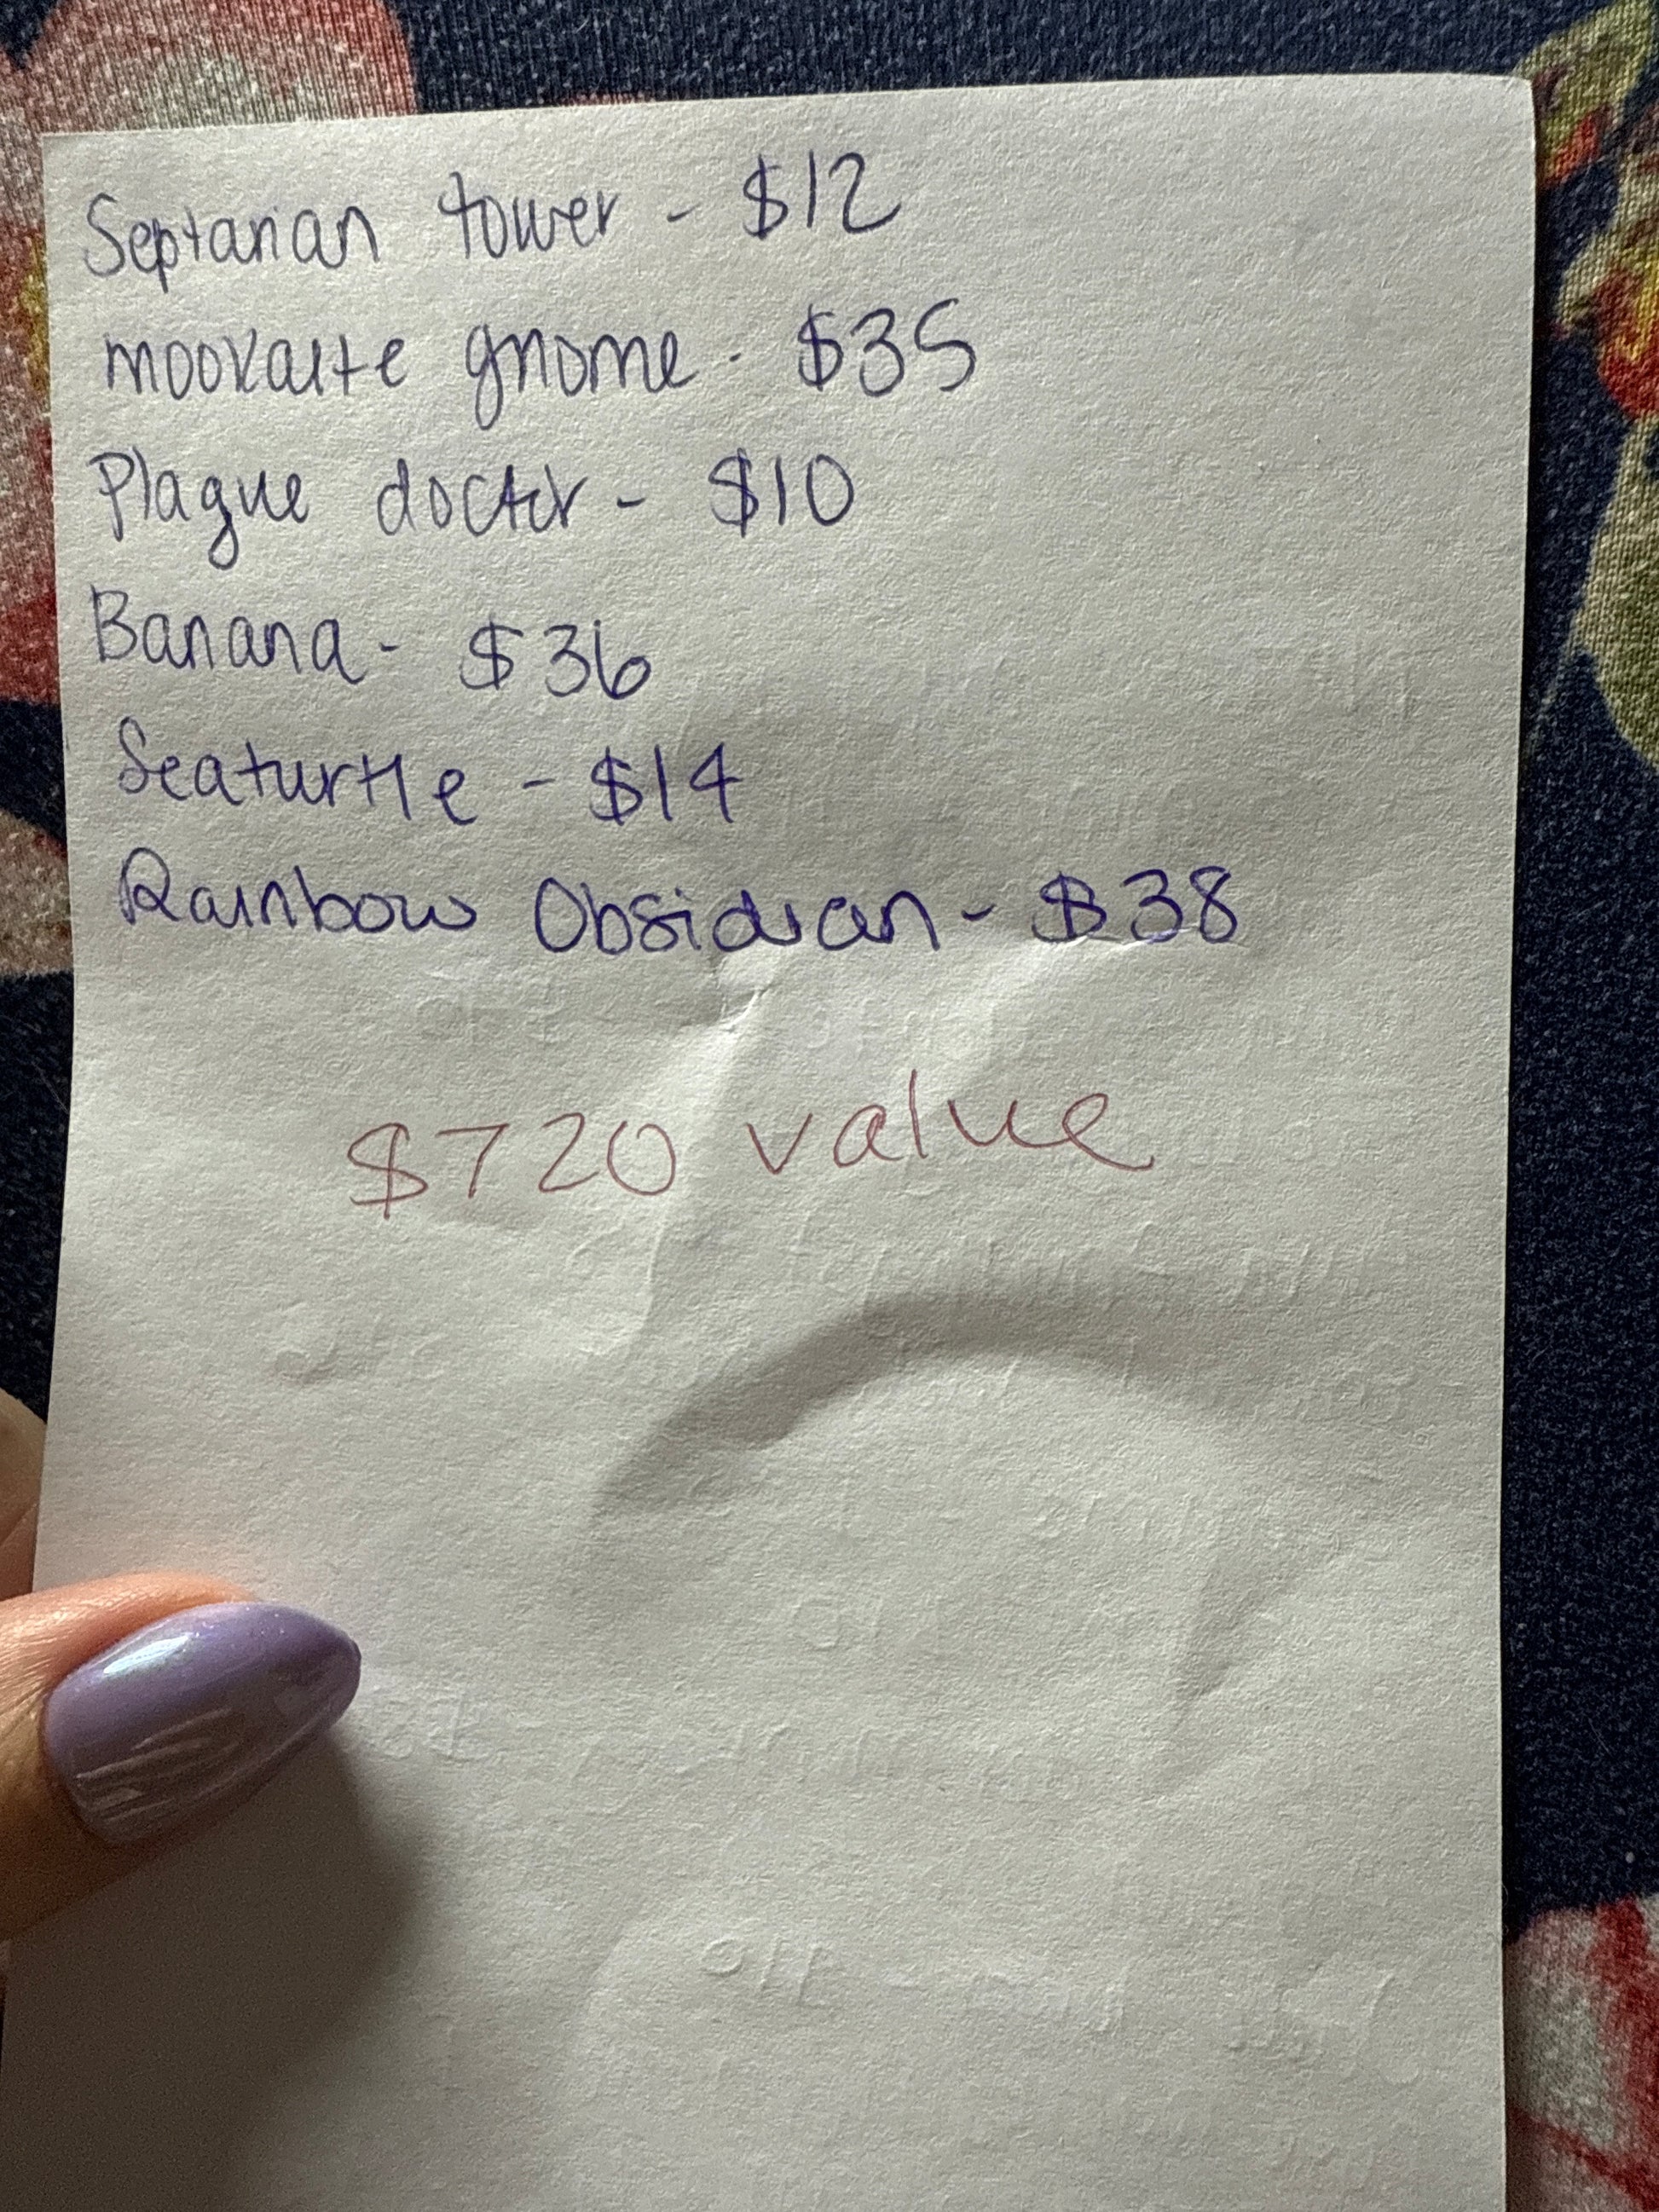 Septarian tower - $12
mookaite gnome - $35
Plague doctor - $10
Banana - $36
Seaturtle - $14
Rainbow Obsidian - $38
$720 value